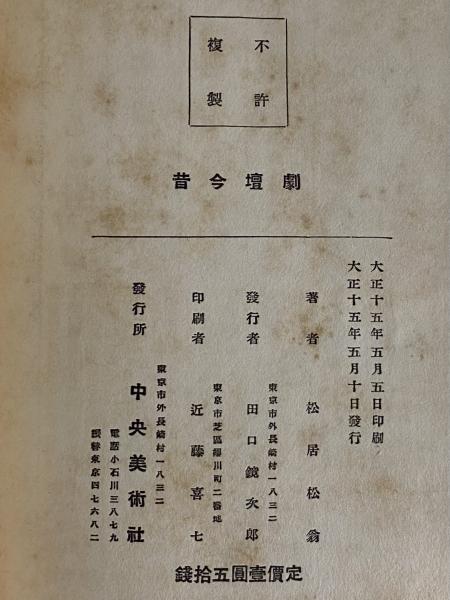 不許
複製
劇壇今昔
大正十五年五月五日印刷
大正十五年五月十日發行
著者 松居松翁
東京市外長崎村一八三二
發行者 田口鏡次郎
東京市芝區 町二番地
印刷者 近藤喜七
東京市外長崎村一八三二
發行所 中央美術社
電話小石川三八七九
振替東京四七六八二
定價壹圓五拾錢